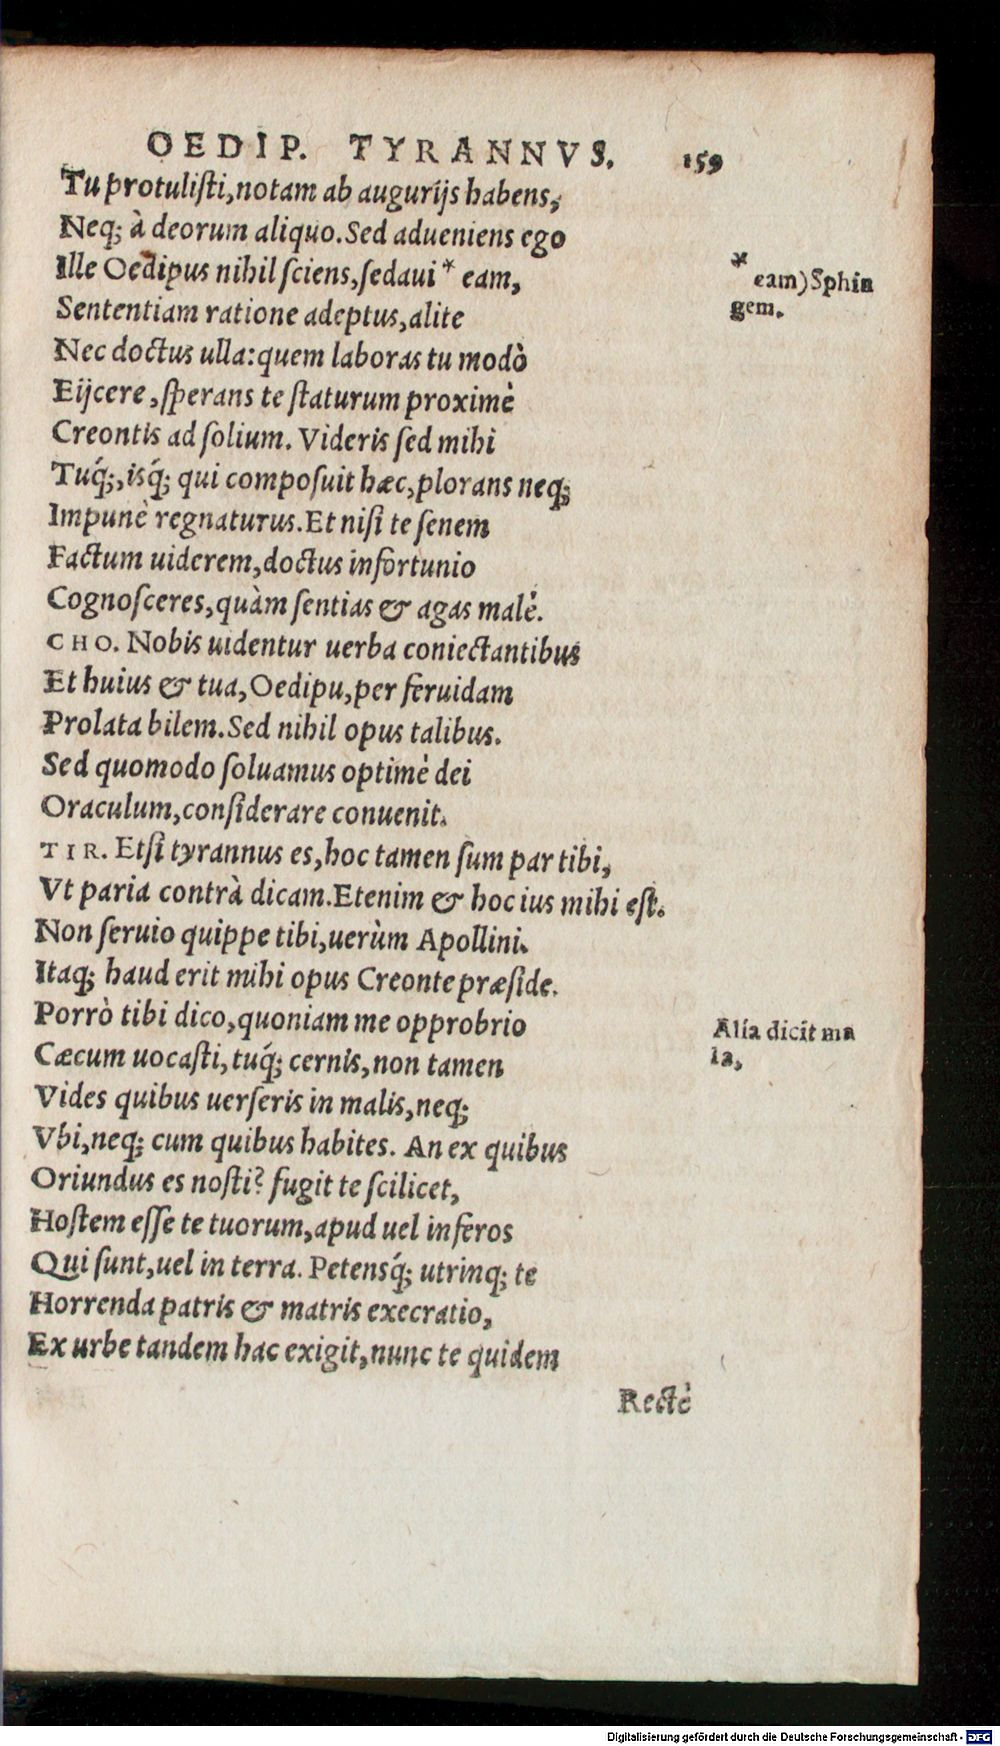 OEDIP. TYRANNVS. 159
Tu protuliſti, notam ab augurijs habens,
Neq; à deorum aliquo. Sed adueniens ego
Ille Oedipus nihil ſciens, ſedaui * eam,
* eam) Sphin
gem.
Sententiam ratione adeptus, alite
Nec doctus ulla: quem laboras tu modò
Eijcere, ſperans te ſtaturum proximè
Creontis ad ſolium. Videris ſed mihi
Tuq́;, isq́; qui compoſuit hæc, plorans neq;
Impunè regnaturus. Et niſi te ſenem
Factum uiderem, doctus infortunio
Cognoſceres, quàm ſentias & agas malè.
CHO. Nobis uidentur uerba coniectantibus
Et huius & tua, Oedipu, per feruidam
Prolata bilem. Sed nihil opus talibus.
Sed quomodo ſoluamus optimè dei
Oraculum, conſiderare conuenit.
TIR. Etſi tyrannus es, hoc tamen ſum par tibi,
Vt paria contrà dicam. Etenim & hoc ius mihi eſt.
Non ſeruio quippe tibi, uerùm Apollini.
Itaq; haud erit mihi opus Creonte præſide.
Porrò tibi dico, quoniam me opprobrio
Alia dicit ma
la,
Cæcum uocaſti, tuq́; cernis, non tamen
Vides quibus uerſeris in malis, neq;
Vbi, neq; cum quibus habites. An ex quibus
Oriundus es noſti? fugit te ſcilicet,
Hoſtem eſſe te tuorum, apud uel inferos
Qui ſunt, uel in terra. Petensq́; utrinq; te
Horrenda patris & matris execratio,
Ex urbe tandem hac exigit, nunc te quidem
Rectè
Digitalisierung gefördert durch die Deutsche Forschungsgemeinschaft - DFG